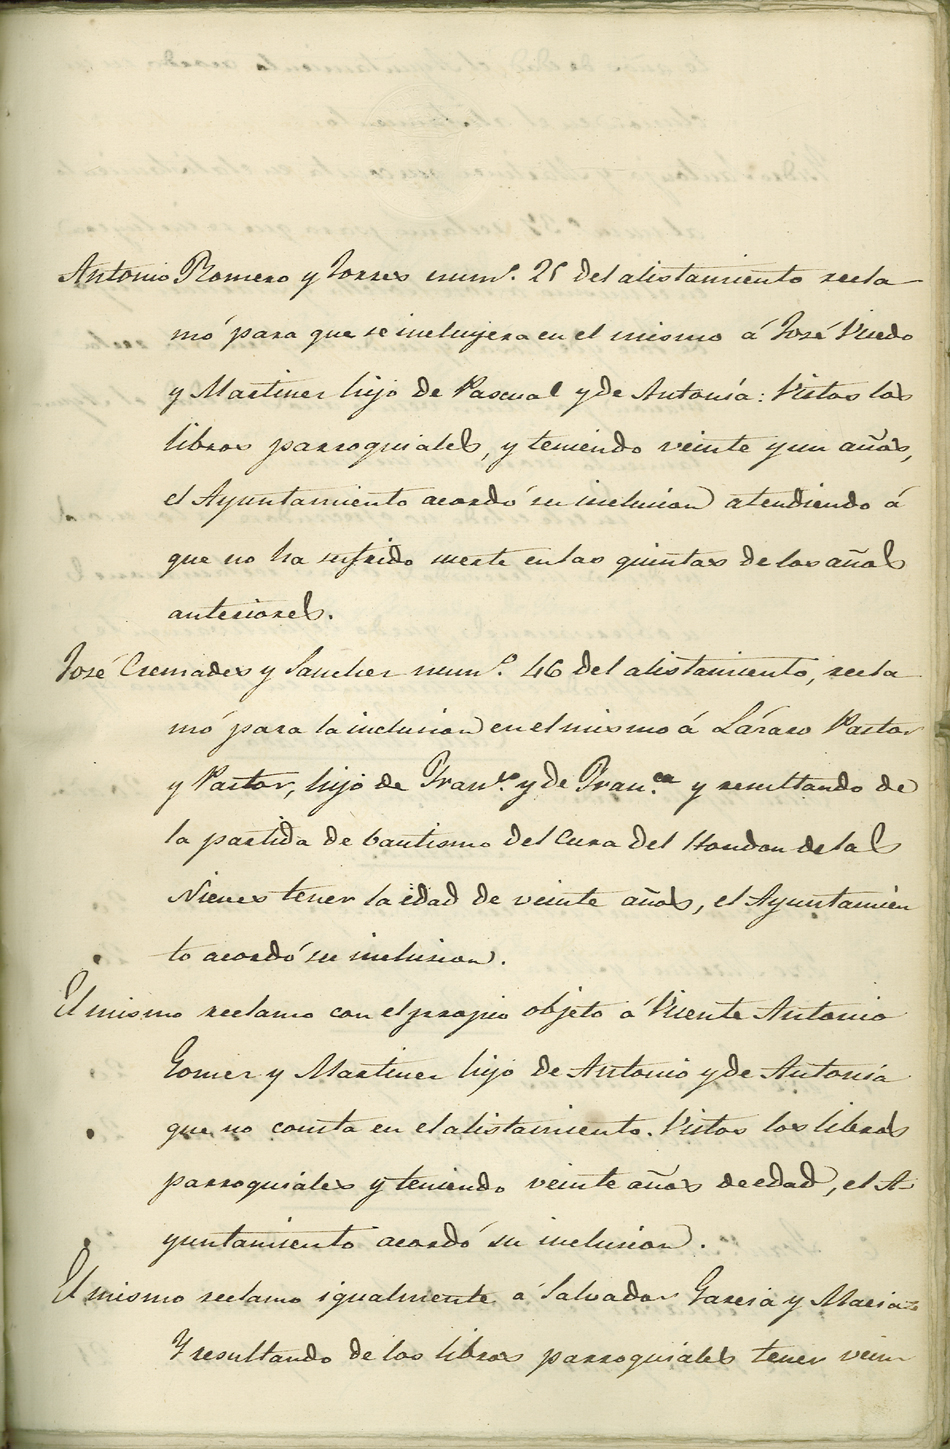 Antonio Romero y Torres num.º 25 del alistamiento recla
mó para que se incluyera en el mismo á José Vicedo
y Martinez hijo de Pascual y de Antonia: Vistos los
libros parroquiales, y teniendo veinte y un años,
el Ayuntamiento acordó su inclusion atendiendo á
que no ha sufrido suerte en las quintas de los años
anteriores.
José Cremades y Sanchez num.º 46 del alistamiento, recla
mó para la inclusion en el mismo á Lázaro Pastor
y Pastor, hijo de Fran.co y de Fran.ca y resultando de
la partida de bautismo del Cura del Hondon de las
Nieves tener la edad de veinte años, el Ayuntamien
to acordó su inclusion.
El mismo reclamo con el propio objeto á Vicente Antonio
Gomez y Martinez hijo de Antonio y de Antonia
que no consta en el alistamiento. Vistos los libros
parroquiales y teniendo veinte años de edad, el A-
yuntamiento acordó su inclusion.
El mismo reclamo igualmente á Salvador Garcia y Macia
Y resultando de los libros parroquiales tener vein